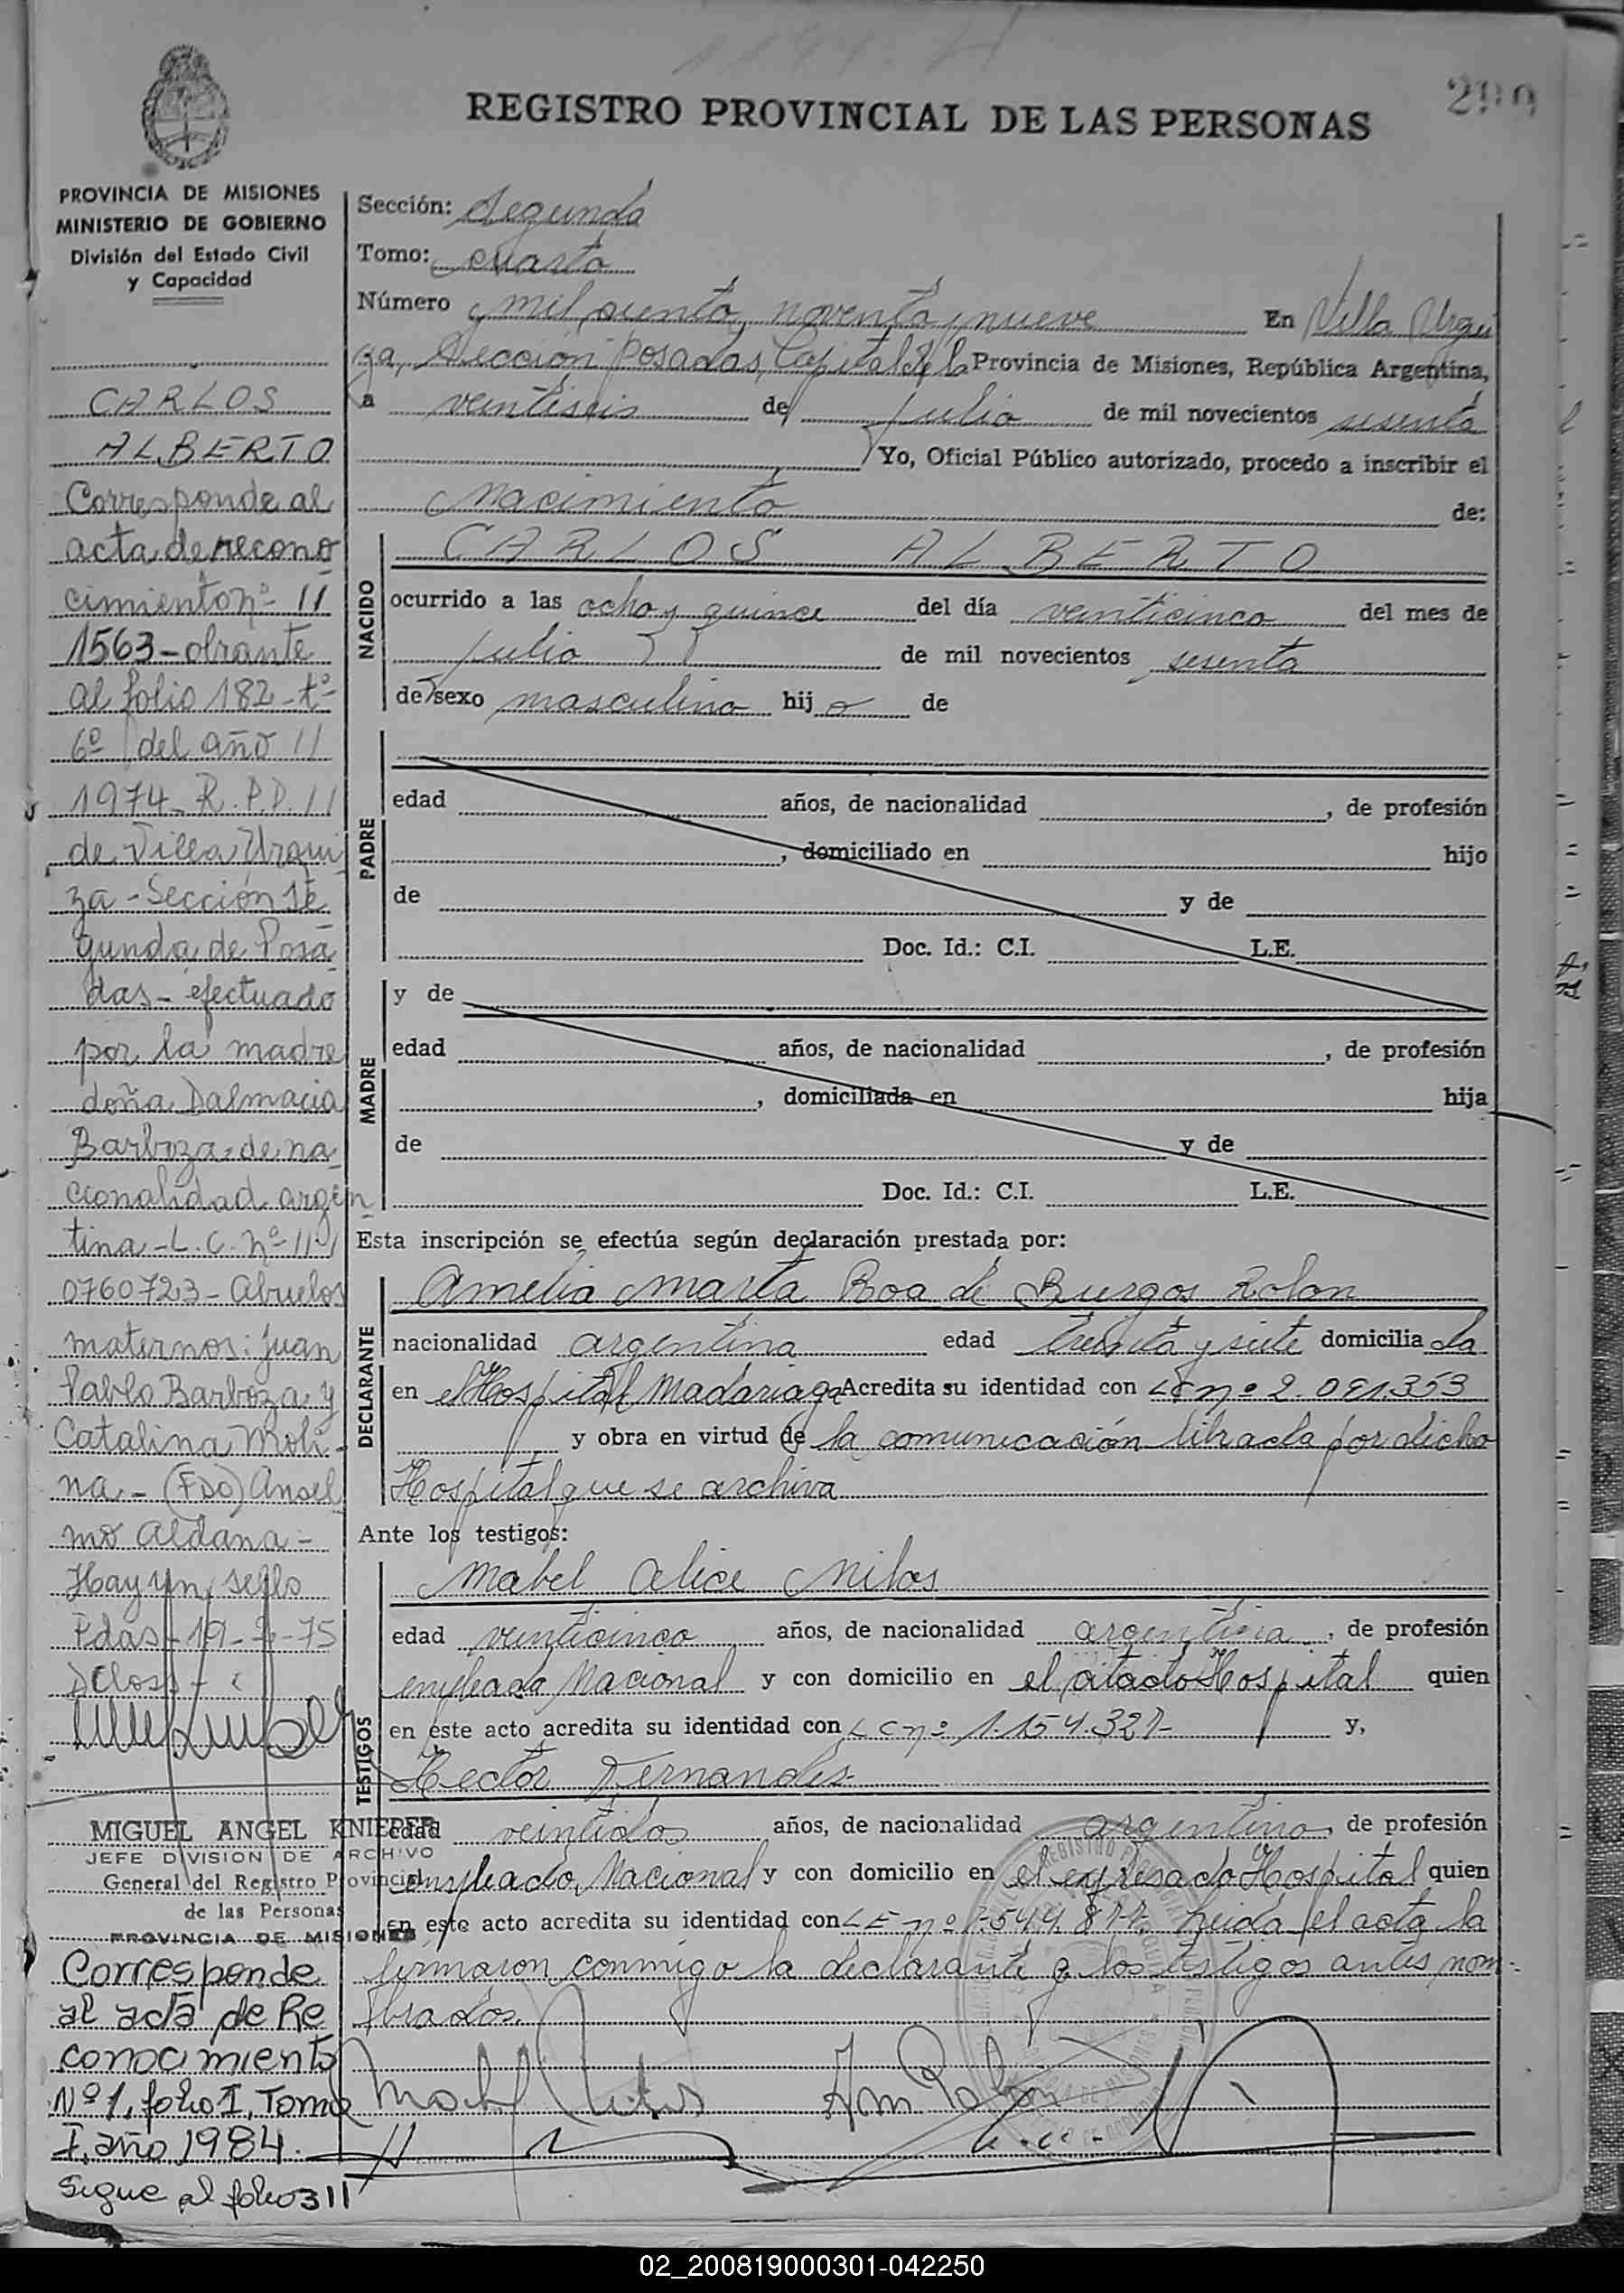 REGISTRO PROVINCIAL DE LAS PERSONAS
PROVINCIA DE MISIONES
MINISTERIO DE GOBIERNO
División del Estado Civil
y Capacidad
CARLOS
ALBERTO
Corresponde al
acta de recono
cimiento nº 11
1563-obrante
al folio 182-tº
6º del año 11
1974-R.P.P. 11
de Villa Urqui
za-Sección Se
gunda de Posa
das-efectuado
por la madre
doña Dalmacia
Barboza-de na
cionalidad argen
tina-L.C. nº 11-
0760723-Abuelos
maternos: Juan
Pablo Barboza y
Catalina Moli-
na.-(FDO) Ansel
mo Aldana-
Hay un sello
Pdas-19- -75
MIGUEL ANGEL KNIEPER
JEFE DIVISION DE ARCHIVO
General del Registro Provincial
de las Personas
PROVINCIA DE MISIONES
Corresponde
al acta de Re
conocimiento
Nº1, folio I, Tomo
I, año 1984.
Sigue al folio 311
Sección: Segunda
Tomo: cuarto
Número mil ciento noventa y nueve En Villa Urqui
za, Sección Posadas, Capital de la Provincia de Misiones, República Argentina,
a veintiseis de julio de mil novecientos sesenta
Yo, Oficial Público autorizado, procedo a inscribir el
nacimiento de:
NACIDO
CARLOS ALBERTO
ocurrido a las ocho y quince del día venticinco del mes de
julio de mil novecientos sesenta
de sexo masculino hijo de
PADRE
edad años, de nacionalidad , de profesión
, domiciliado en hijo
de y de
Doc. Id.: C.I. L.E.
MADRE
y de
edad años, de nacionalidad , de profesión
, domiciliada en hija
de y de
Doc. Id.: C.I. L.E.
Esta inscripción se efectúa según declaración prestada por:
DECLARANTE
Amelia Marta Roa de Burgos Rolon
nacionalidad argentina edad treinta y siete domiciliada
en el Hospital Madariaga Acredita su identidad con LC nº 2.081353
y obra en virtud de la comunicación librada por dicho
Hospital que se archiva
Ante los testigos:
TESTIGOS
Mabel Alice Milos
edad veinticinco años, de nacionalidad argentina, de profesión
empleada Nacional y con domicilio en el citado Hospital quien
en este acto acredita su identidad con LC nº 1.154.327- y,
Hector Fernandes
edad veintidos años, de nacionalidad argentino, de profesión
empleado Nacional y con domicilio en el expresado Hospital quien
en este acto acredita su identidad con LE nº leida el acta la
firmaron conmigo la declarante y los testigos antes nom-
brados.
02_200819000301-042250